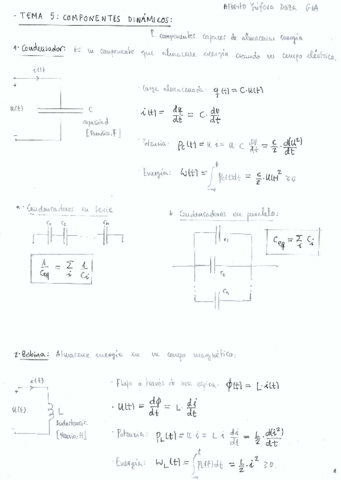 - TEMA 5: COMPONENTES DINÁMICOS:
↑ componentes capaces de almacenar energía
1- Condensador: Es un componente que almacena energía creando un campo eléctrico.
i(t)
u(t)
C
capacidad
[Faradios, F]
· Carga almacenada: q(t) = C·u(t)
· i(t) = dq/dt = C · du/dt
· Potencia: p_c(t) = u·i = u·C du/dt = C/2 · d(u²)/dt
· Energía: W(t) = ∫ p(t)dt = C/2 · u(t)² ≥ 0
a. Condensadores en serie
C₁ C₂ Cₙ
1/Ceq = Σᵢ 1/Cᵢ
b. Condensadores en paralelo:
C₁
C₂
Cₙ
Ceq = Σᵢ Cᵢ
2- Bobina: Almacena energía en un campo magnético.
i(t)
u(t)
L
Inductancia
[Henrio, H]
· Flujo a través de una espira: ϕ(t) = L·i(t)
· u(t) = dϕ/dt = L · di/dt
· Potencia: p_L(t) = u·i = L·i di/dt = L/2 · d(i²)/dt
· Energía: W_L(t) = ∫ p(t)dt = L/2 · i² ≥ 0.